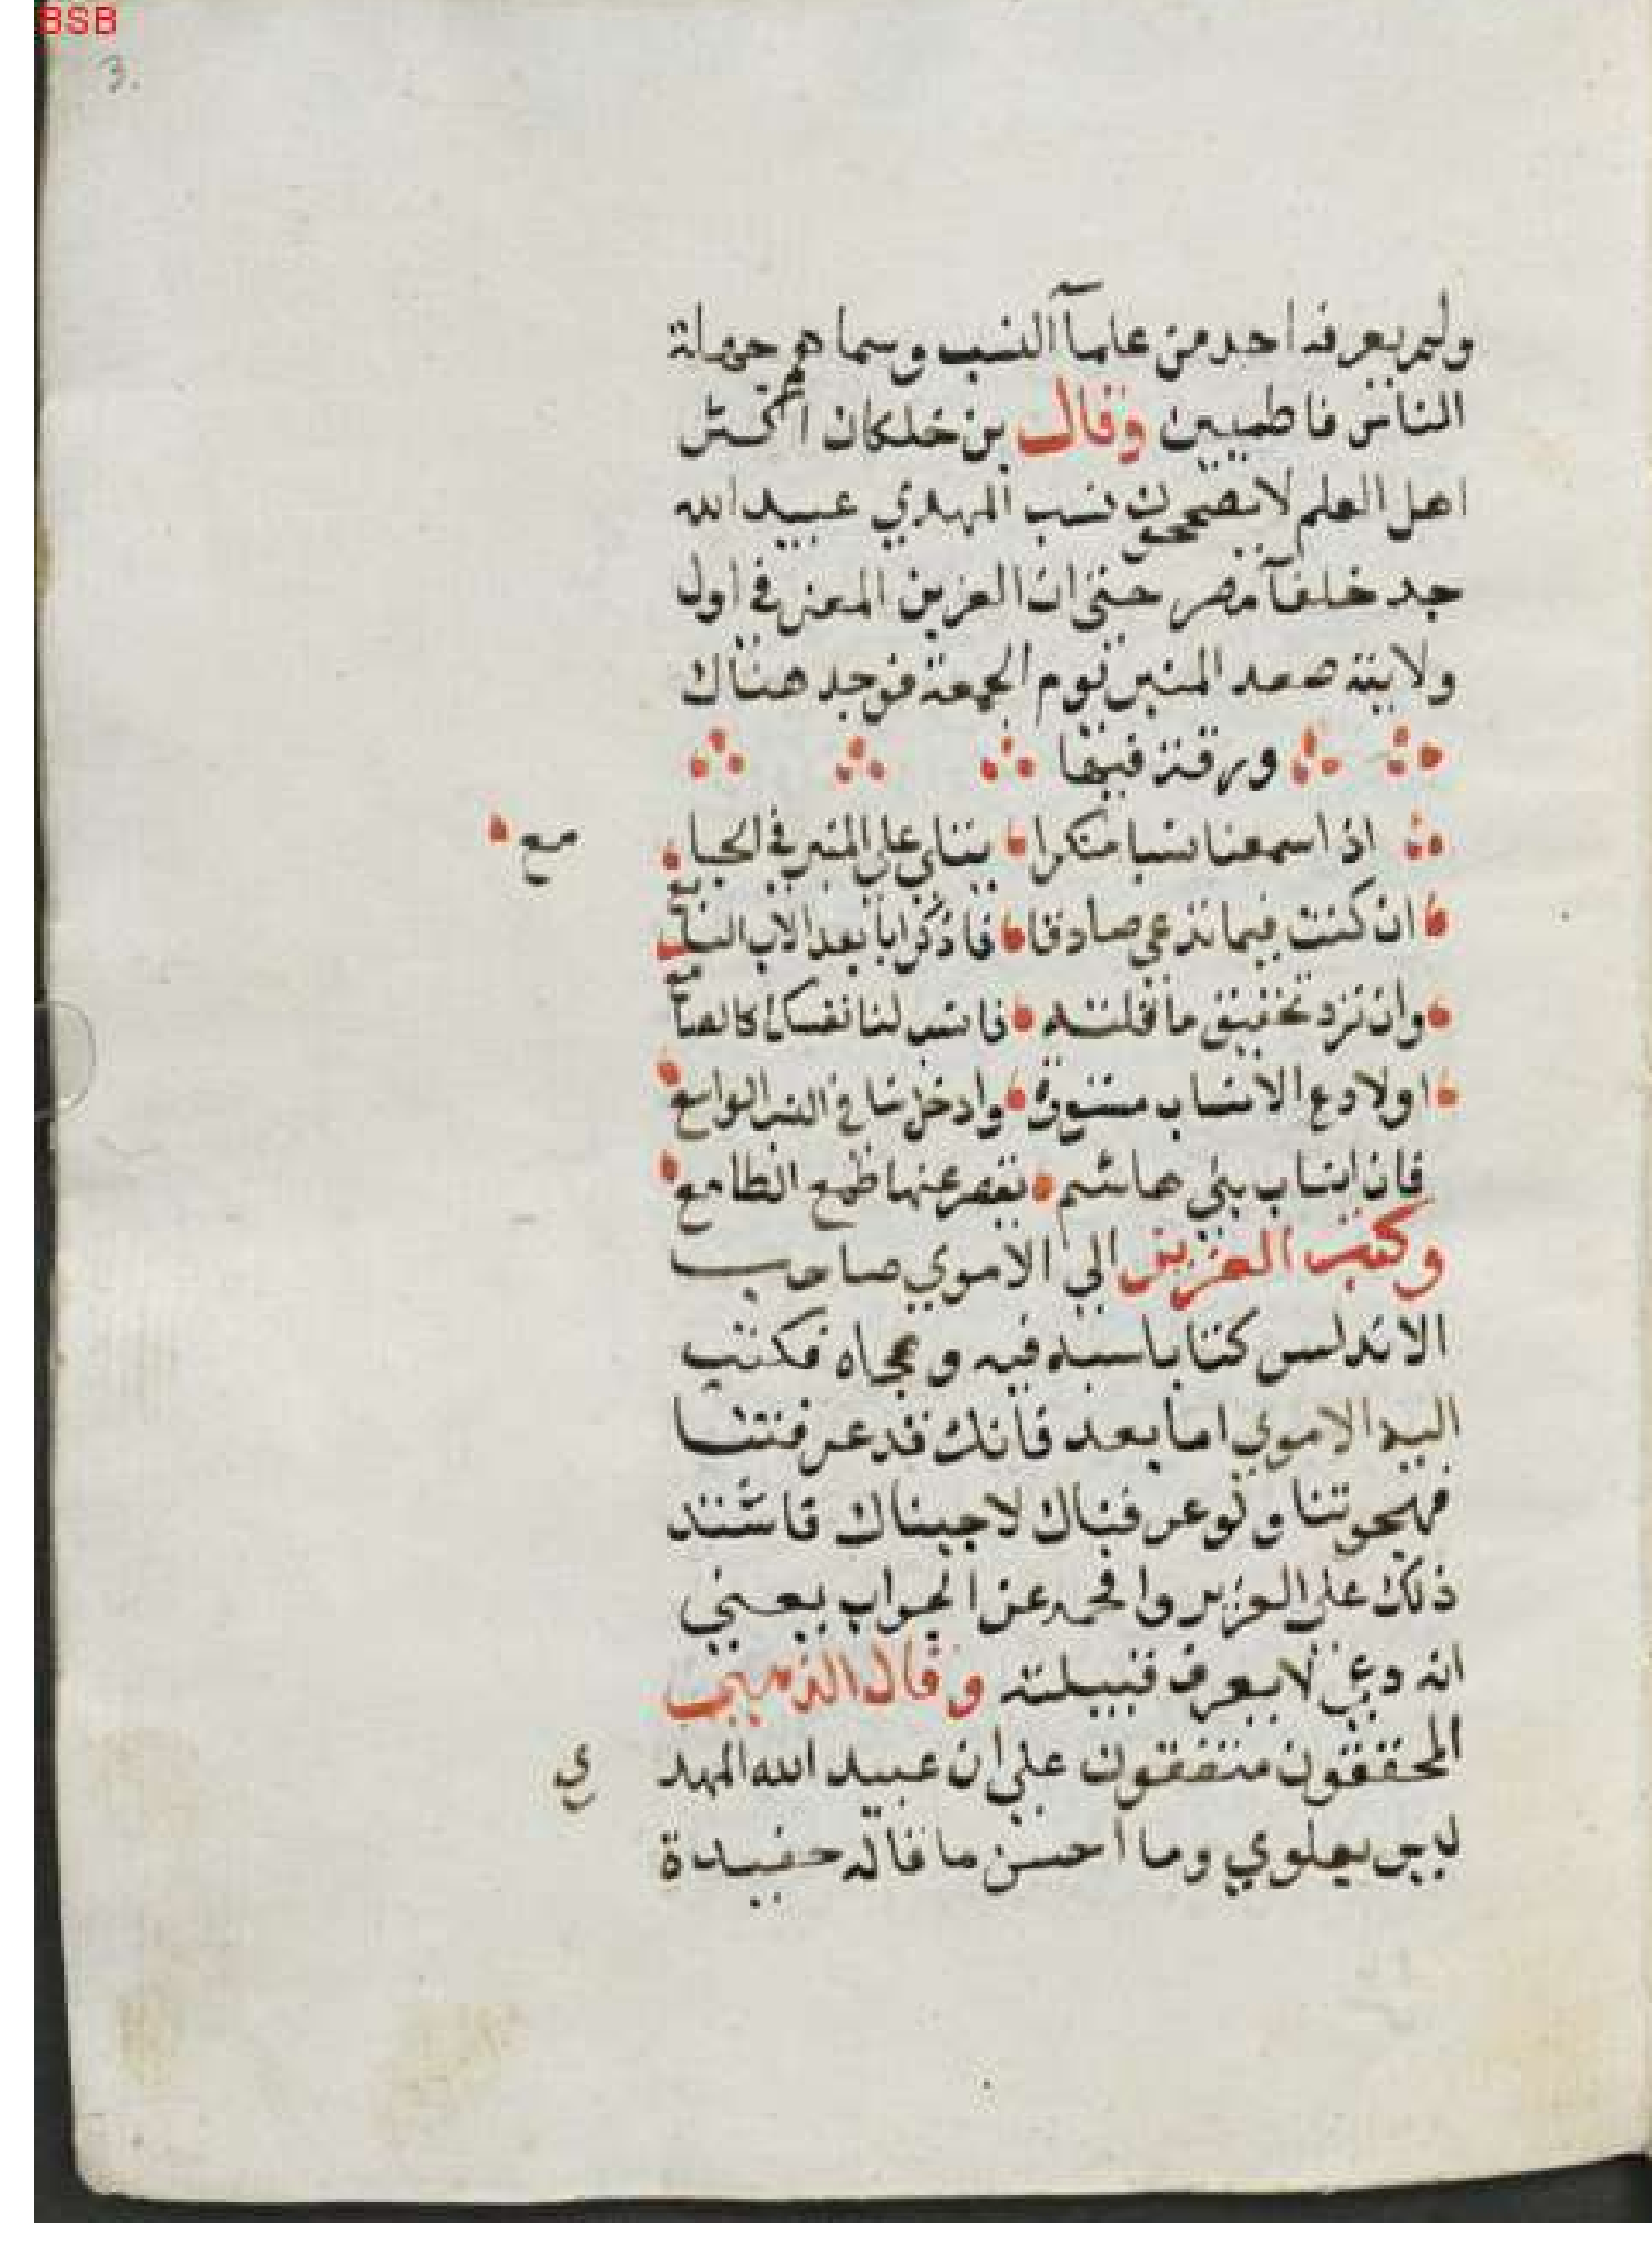 BSB
3.
ولم يعرفه احد من علمآ النسب وسماهم جهلة
الناس فاطميين وقال بن خلكان اكثر
اهل العلم لا يصححون نسب المهدي عبيد الله
جد خلفآ مصر حتى ان العزيز بن المعز في اول
ولايته صعد المنبر يوم الجمعة فوجد هناك
ورقة فيها
اذا سمعنا نسبا منكرا يتلي علي المنبر في الجامع
ان كنت فيما تدعي صادقا فاذكر ابا بعد الاب السابع
وان ترد تحقيق ما قلته فانسب لنا نفسك كالطائع
اولا دع الانساب مستورة وادخل بنا في النسب الواسع
فان انساب بني هاشم يقصر عنها طمع الطامع
وكتب العزيز الي الاموي صاحب
الاندلس كتابا سبه فيه وهجاه فكتب
اليه الاموي اما بعد فانك قد عرفتنا
فهجوتنا ولو عرفناك لاجبناك فاشتد
ذلك علي العزيز وافحمه عن الجواب يعني
انه دعي لا يعرف قبيلته وقال الذهبي
المحققون متفقون علي ان عبيد الله المهدي
ليس بعلوي وما احسن ما قاله حفيده